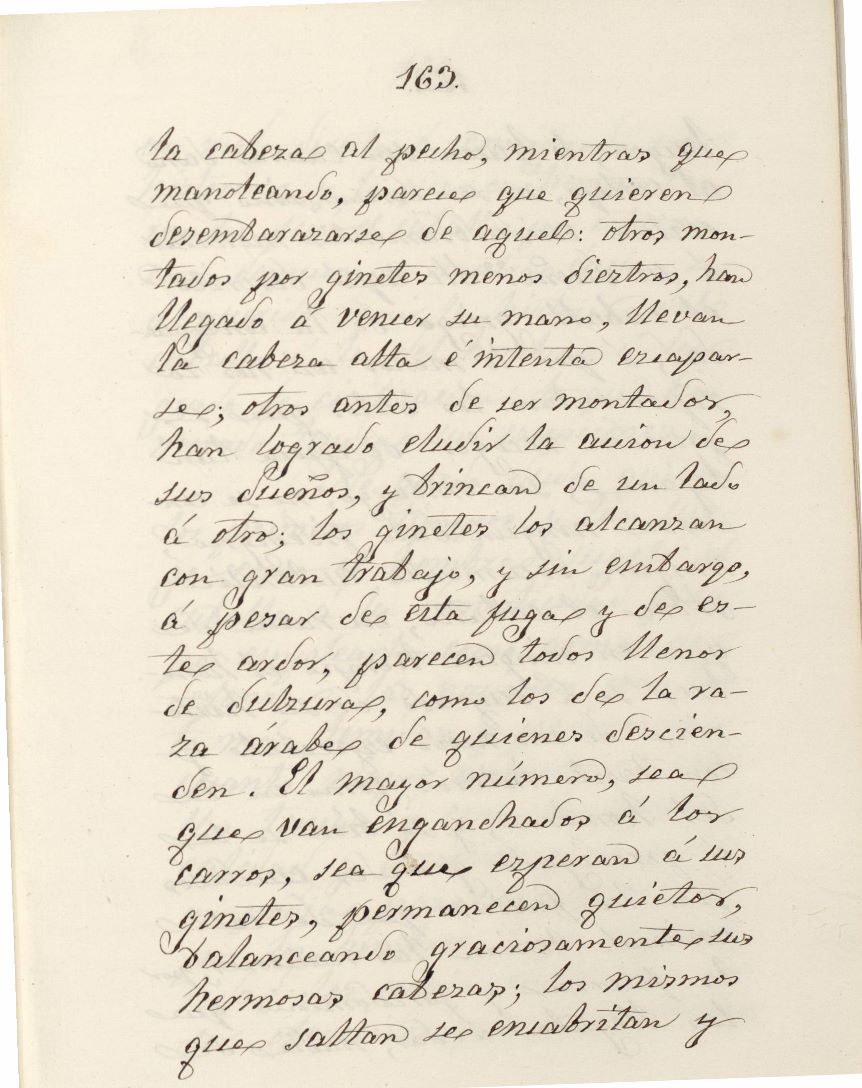 163.
la cabeza al pecho, mientras que
manoteando, parece que quieren
desembarazarse de aquel: otros mon-
tados por ginetes menos diestros, han
llegado á vencer su mano, llevan
la cabeza alta é intenta escapar-
se; otros antes de ser montados,
han logrado eludir la accion de
sus dueños, y brincan de un lado
á otro; los ginetes los alcanzan
con gran trabajo, y sin embargo,
á pesar de esta fuga y de es-
te ardor, parecen todos llenos
de dulzura, como los de la ra-
za árabe de quienes descien-
den. El mayor número, sea
que van enganchados á los
carros, sea que esperan á sus
ginetes, permanecen quietos,
balanceando graciosamente sus
hermosas cabezas; los mismos
que saltan se encabritan y